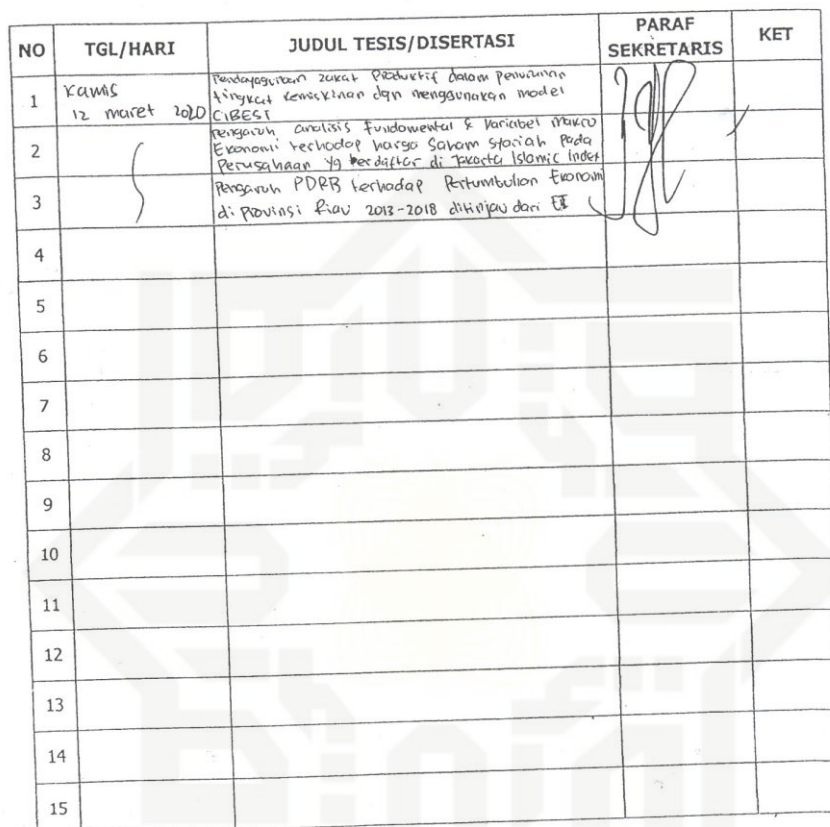 NO TGL/HARI JUDUL TESIS/DISERTASI PARAF SEKRETARIS KET
1 Kamis 12 maret 2020 Pendayagunaan zakat Produktif dalam penurunan
tingkat kemiskinan dgn menggunakan model
CIBEST
2 Pengaruh analisis fundamental & Variabel makro
Ekonomi terhadap harga Saham Syariah Pada
Perusahaan yg terdaftar di Jakarta Islamic Index
3 Pengaruh PDRB terhadap Pertumbuhan Ekonomi
di Provinsi Riau 2013-2018 ditinjau dari EI
4
5
6
7
8
9
10
11
12
13
14
15